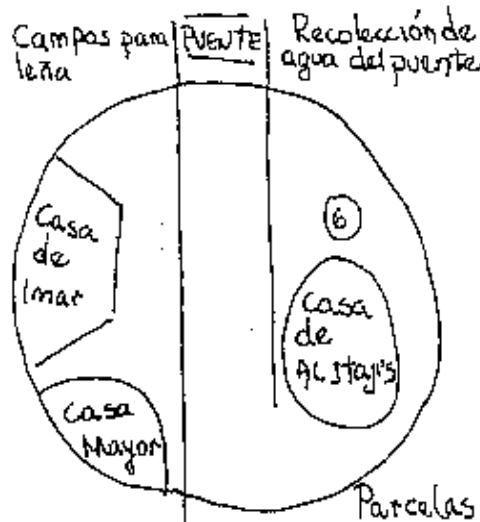 Campos para
leña
PUENTE
Recolección de
agua del puente
Casa
de
Imar
6
Casa
de
ALItaji's
Casa
Mayor
Parcelas